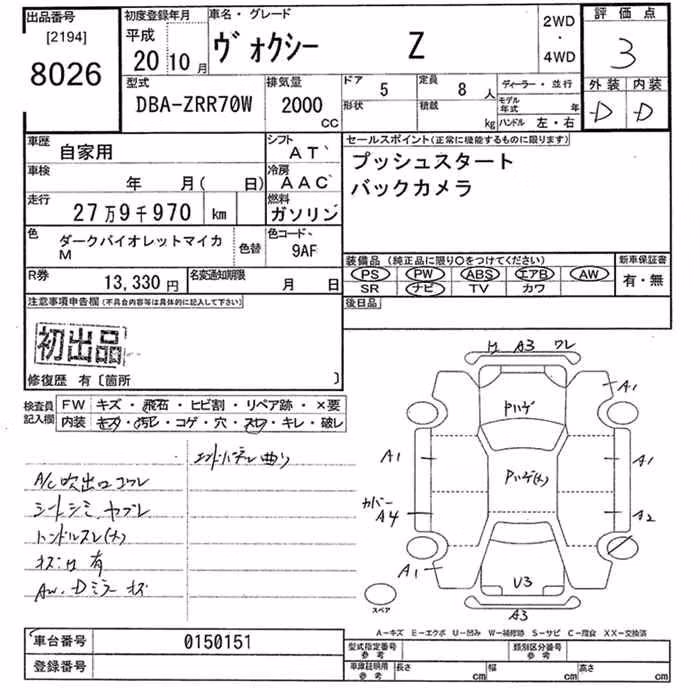 出品番号
[2194]
8026
初度登録年月
平成
20 10 月
車名・グレード
ヴォクシー Z
2WD
・
4WD
評価点
3
外装 内装
D D
型式
DBA-ZRR70W
排気量
2000
CC
ドア 5
形状
定員 8 人
積載 kg
ディーラー・並行
モデル年式 年
ハンドル 左・右
車歴
自家用
シフト
AT
車検
年 月( 日)
冷房
AAC
走行
27万9千970 km
燃料
ガソリン
色
ダークバイオレットマイカ
M
色替
色コード
9AF
R券
13,330 円
名変通知期限
月 日
セールスポイント(正常に機能するものに限ります)
プッシュスタート
バックカメラ
装備品(純正品に限り○をつけてください)
PS PW ABS エアB AW
SR ナビ TV カワ
新車保証書
有・無
後日品
注意事項申告欄(不具合内容等は具体的に記入して下さい)
初出品
修復歴 有〔箇所 〕
検査員
記入欄
FW キズ・飛石・ヒビ割・リペア跡・×要
内装 キズ・汚レ・コゲ・穴・スレ・キレ・破レ
曲り
A/C吹出口コワレ
シートシミ ヤブレ
ハンドルスレ(大)
有
AW.Dミラーキズ
A3 ワレ
A1
Pハゲ
A1
Pハゲ(大)
カバー
A4
A2
A1
U3
A3
スペア
A-キズ E-エクボ U-凹み W-補修跡 S-サビ C-腐食 XX-交換済
車台番号 0150151
登録番号
型式指定番号
参考
類別区分番号
参考
車庫証明用
参考
長さ cm
幅 cm
高さ cm